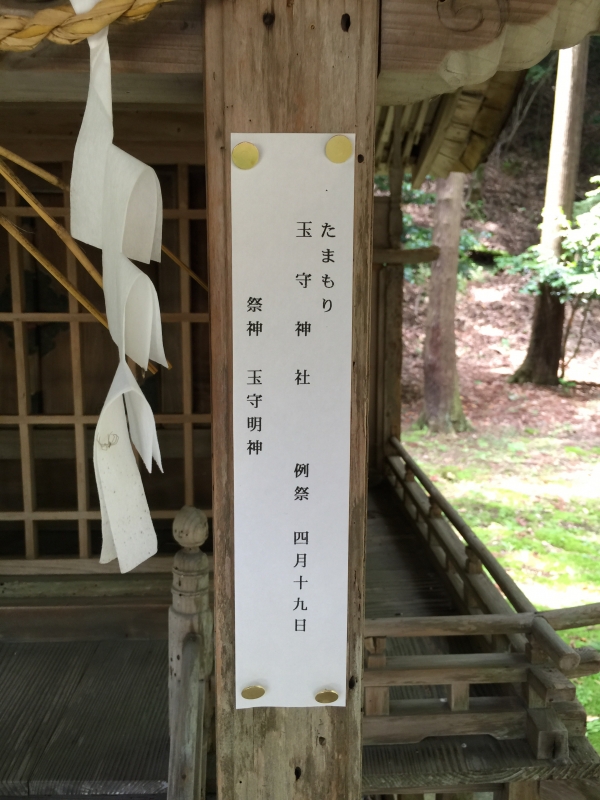 たまもり
玉守神社　例祭　四月十九日
祭神　玉守明神